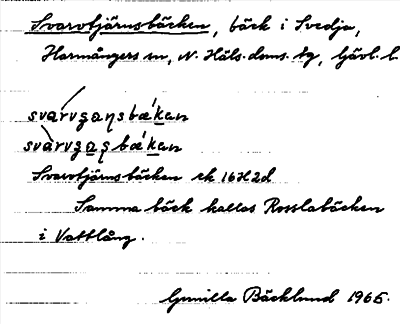 Svarvtjärnsbäcken, bäck i Svedja,
Harmångers sn, N. Häls. doms. hg, Gävl. l.
svarvʒaɳsbækan
svarvʒaʂbækan
Svarvtjärnsbäcken ek 16H2d
Samma bäck kallas Rosslabäcken
i Vattlång.
Gunilla Bäcklund 1965.